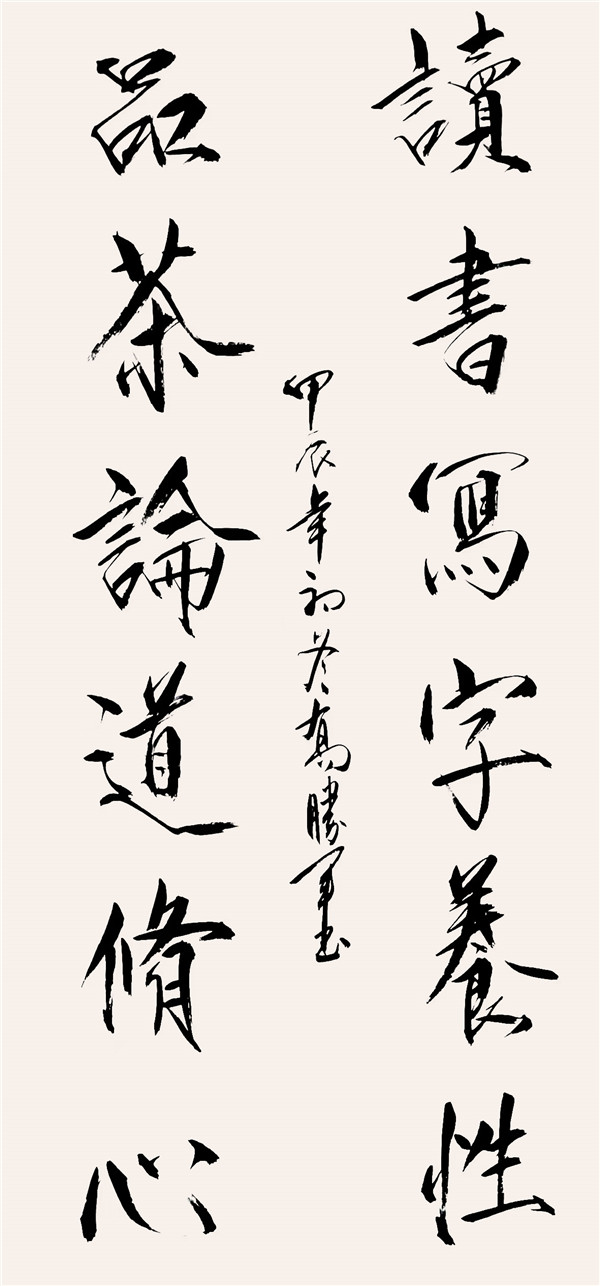 讀書寫字養性
品茶論道脩心
甲辰年初冬高勝軍书